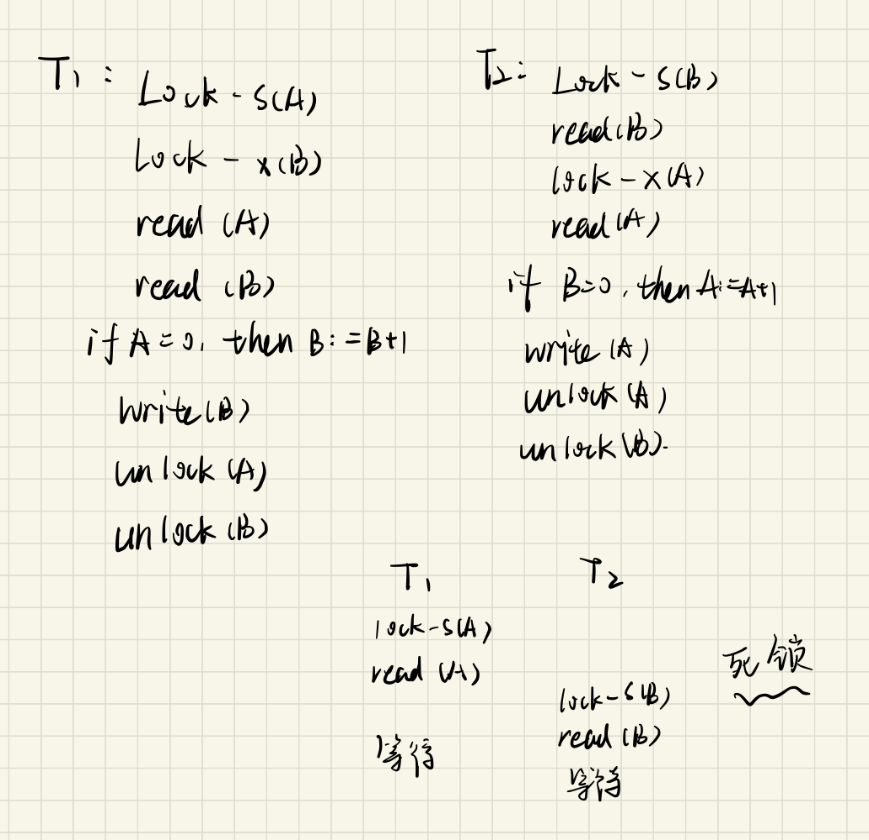 T1:
Lock-S(A)
Lock-X(B)
read(A)
read(B)
if A=0, then B:=B+1
write(B)
unlock(A)
unlock(B)
T2:
Lock-S(B)
read(B)
lock-X(A)
read(A)
if B=0, then A:=A+1
write(A)
unlock(A)
unlock(B).
T1
lock-S(A)
read(A)
等待
T2
lock-S(B)
read(B)
等待
死锁